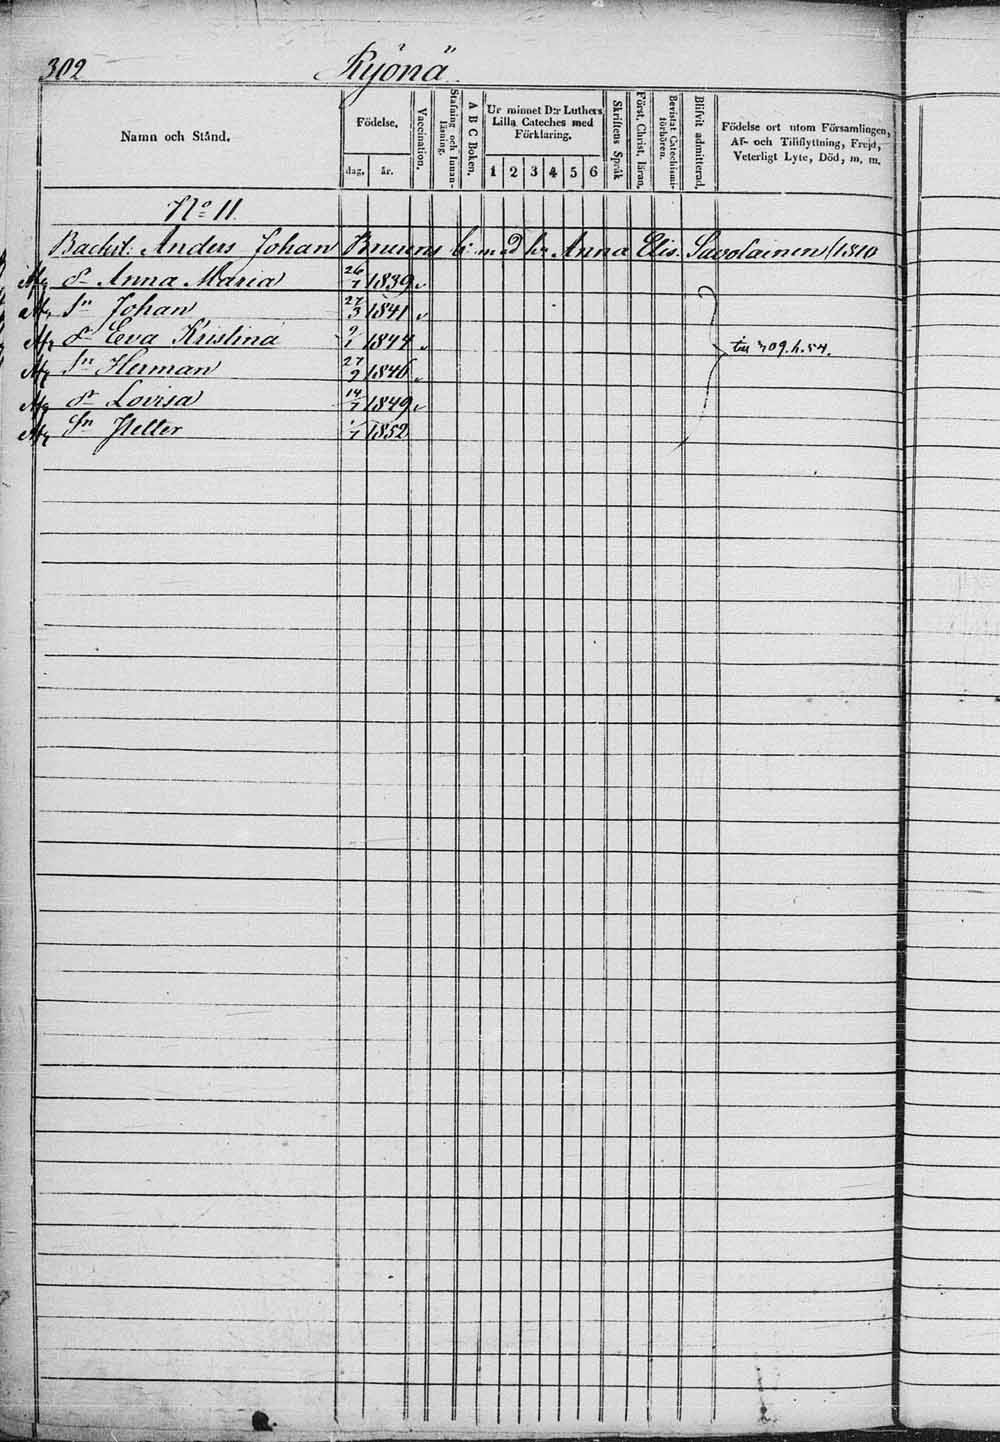 302 Kyönä
Namn och Stånd.
Födelse,
dag, år.
Vaccination.
Stafning och Innan-läsning.
A B C Boken.
Ur minnet D:r Luthers
Lilla Cateches med
Förklaring.
1 2 3 4 5 6
Skriftens Språk
Först. Christ. läran.
Bevistat Catechismi-förhören.
Blifvit admitterad.
Födelse ort utom Församlingen,
Af- och Tillflyttning, Frejd,
Veterligt Lyte, Död, m. m.
No 11.
Backst. Anders Johan Bruuns b: med h. Anna Elis. Savolainen /1810
dr Anna Maria 26/7 1839 v
Sn Johan 27/3 1841 v
dr Eva Kristina 9/1 1844 v
till 309.h.54.
Sn Herman 27/9 1846 v
dr Lovisa 14/7 1849 v
Sn Petter 1/7 1852